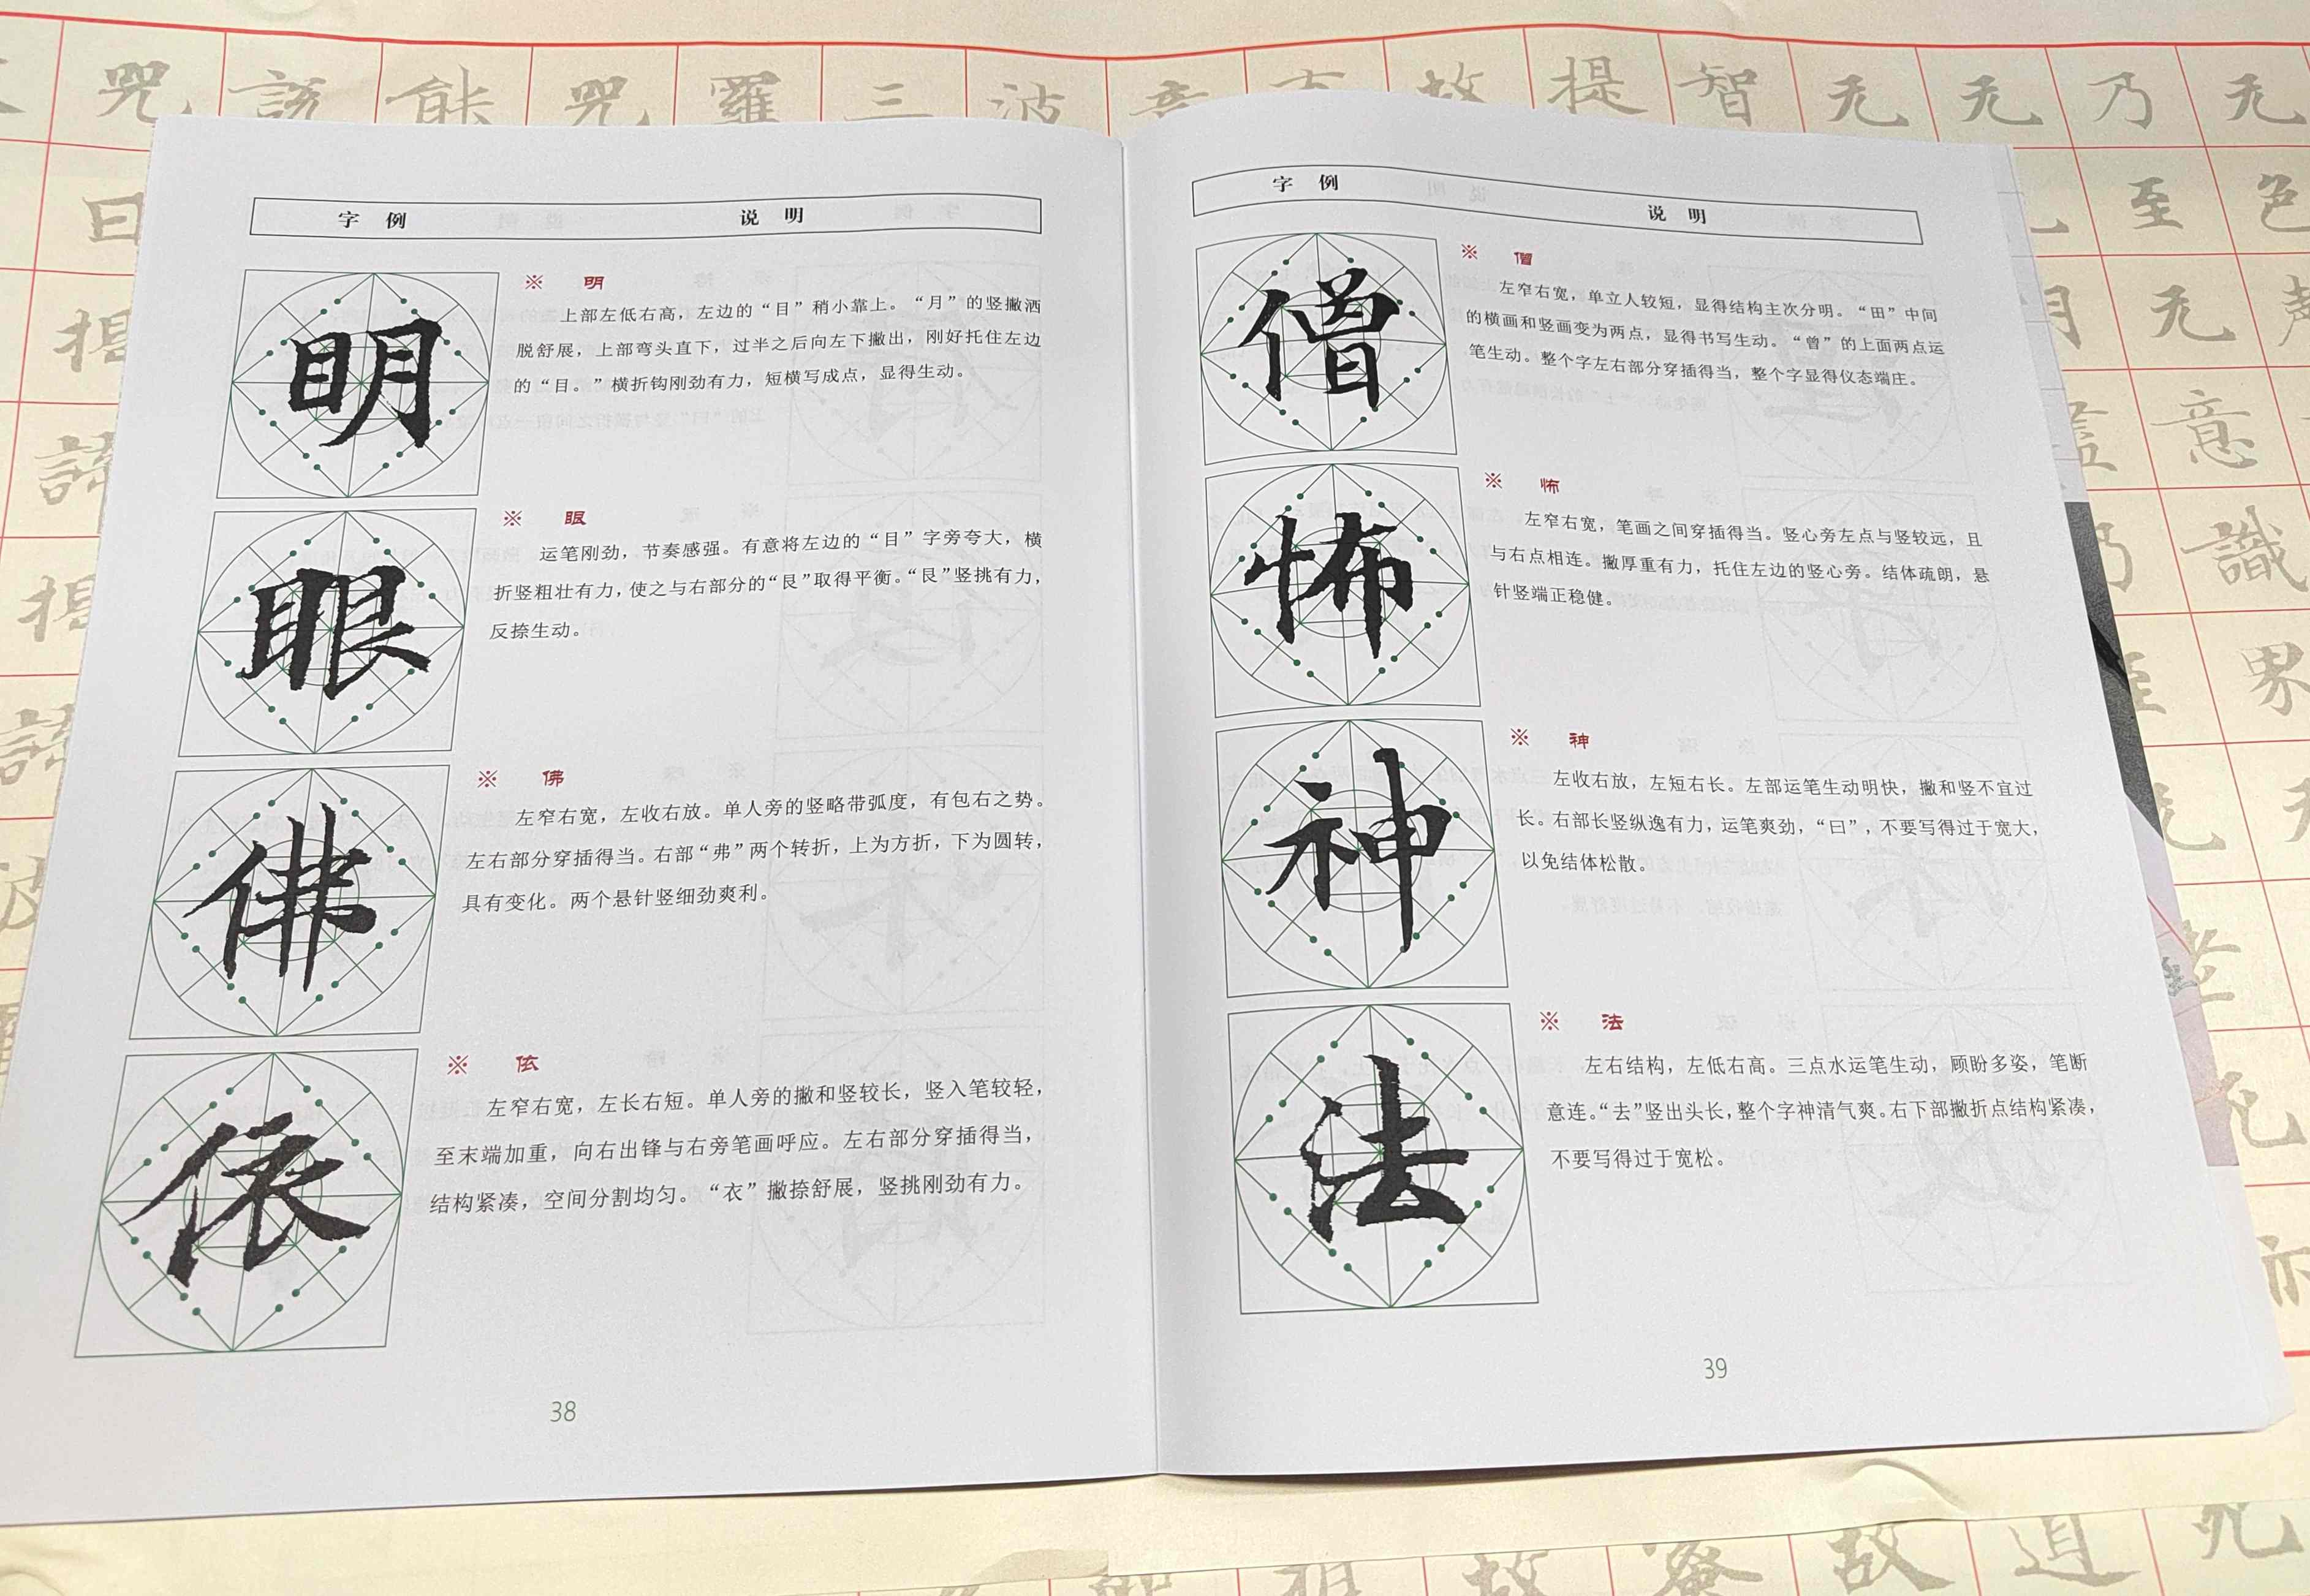 咒 該 能 咒 羅 三 波 意 故 提 智 无 无 乃 无
曰 至 色
无
意
識
界
字 例 说 明
明
※ 明
上部左低右高，左边的“目”稍小靠上。“月”的竖撇洒
脱舒展，上部弯头直下，过半之后向左下撇出，刚好托住左边
的“目。”横折钩刚劲有力，短横写成点，显得生动。
眼
※ 眼
运笔刚劲，节奏感强。有意将左边的“目”字旁夸大，横
折竖粗壮有力，使之与右部分的“艮”取得平衡。“艮”竖挑有力，
反捺生动。
佛
※ 佛
左窄右宽，左收右放。单人旁的竖略带弧度，有包右之势。
左右部分穿插得当。右部“弗”两个转折，上为方折，下为圆转，
具有变化。两个悬针竖细劲爽利。
依
※ 依
左窄右宽，左长右短。单人旁的撇和竖较长，竖入笔较轻，
至末端加重，向右出锋与右旁笔画呼应。左右部分穿插得当，
结构紧凑，空间分割均匀。“衣”撇捺舒展，竖挑刚劲有力。
38
字 例 说 明
僧
※ 僧
左窄右宽，单立人较短，显得结构主次分明。“田”中间
的横画和竖画变为两点，显得书写生动。“曾”的上面两点运
笔生动。整个字左右部分穿插得当，整个字显得仪态端庄。
怖
※ 怖
左窄右宽，笔画之间穿插得当。竖心旁左点与竖较远，且
与右点相连。撇厚重有力，托住左边的竖心旁。结体疏朗，悬
针竖端正稳健。
神
※ 神
左收右放，左短右长。左部运笔生动明快，撇和竖不宜过
长。右部长竖纵逸有力，运笔爽劲，“曰”，不要写得过于宽大，
以免结体松散。
法
※ 法
左右结构，左低右高。三点水运笔生动，顾盼多姿，笔断
意连。“去”竖出头长，整个字神清气爽。右下部撇折点结构紧凑，
不要写得过于宽松。
39
故 道